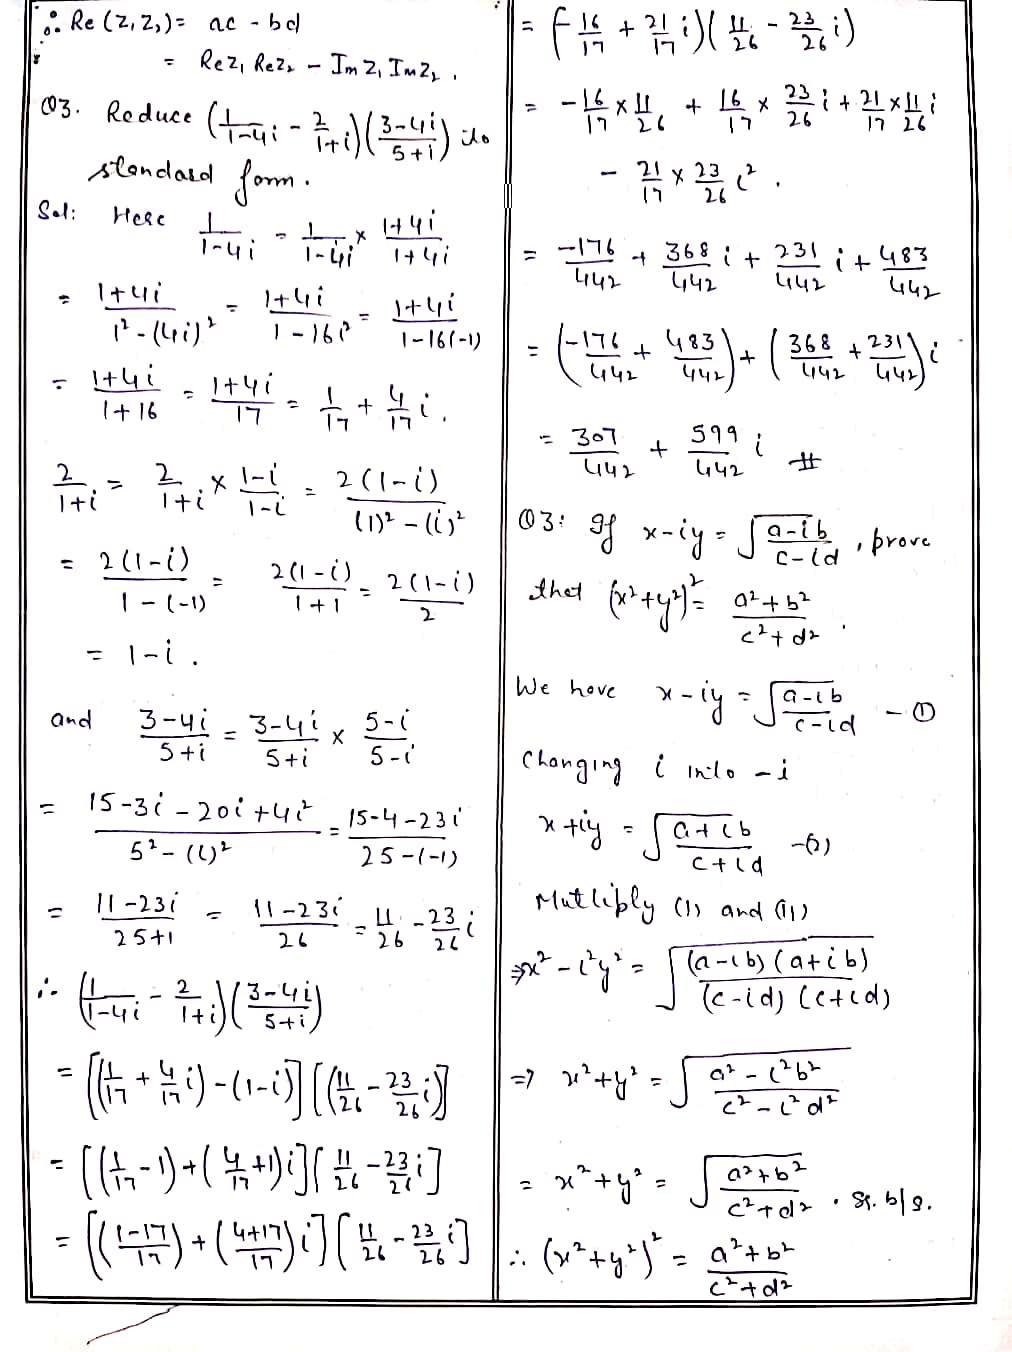 ∴ Re(z₁z₂) = ac - bd
= Rez₁ Rez₂ - Imz₁ Imz₂.
Q3. Reduce (1/(1-4i) - 2/(1+i)) ((3-4i)/(5+i)) ito
standard form.
Sol: Here 1/(1-4i) = 1/(1-4i) × (1+4i)/(1+4i)
= (1+4i)/(1²-(4i)²) = (1+4i)/(1-16i²) = (1+4i)/(1-16(-1))
= (1+4i)/(1+16) = (1+4i)/17 = 1/17 + 4/17 i.
2/(1+i) = 2/(1+i) × (1-i)/(1-i) = 2(1-i)/((1)²-(i)²)
= 2(1-i)/(1-(-1)) = 2(1-i)/(1+1) = 2(1-i)/2
= 1-i.
and (3-4i)/(5+i) = (3-4i)/(5+i) × (5-i)/(5-i)
= (15-3i-20i+4i²)/(5²-(i)²) = (15-4-23i)/(25-(-1))
= (11-23i)/(25+1) = (11-23i)/26 = 11/26 - 23/26 i
∴ (1/(1-4i) - 2/(1+i)) ((3-4i)/(5+i))
= [(1/17 + 4/17 i) - (1-i)] [(11/26 - 23/26 i)]
= [(1/17 - 1) + (4/17 + 1)i] [11/26 - 23/26 i]
= [((1-17)/17) + ((4+17)/17)i] [11/26 - 23/26 i]
= (-16/17 + 21/17 i)(11/26 - 23/26 i)
= -16/17 × 11/26 + 16/17 × 23/26 i + 21/17 × 11/26 i
- 21/17 × 23/26 i².
= -176/442 + 368/442 i + 231/442 i + 483/442
= (-176/442 + 483/442) + (368/442 + 231/442)i
= 307/442 + 599/442 i #
Q3: If x-iy = √((a-ib)/(c-id)), prove
that (x²+y²)² = (a²+b²)/(c²+d²).
We have x-iy = √((a-ib)/(c-id)) - ①
Changing i into -i
x+iy = √((a+ib)/(c+id)) -(2)
Mutlibly (1) and (11)
⇒ x²-i²y² = √((a-ib)(a+ib)/(c-id)(c+id))
⇒ x²+y² = √((a²-i²b²)/(c²-i²d²))
= x²+y² = √((a²+b²)/(c²+d²)). Sq. b/s.
∴ (x²+y²)² = (a²+b²)/(c²+d²)